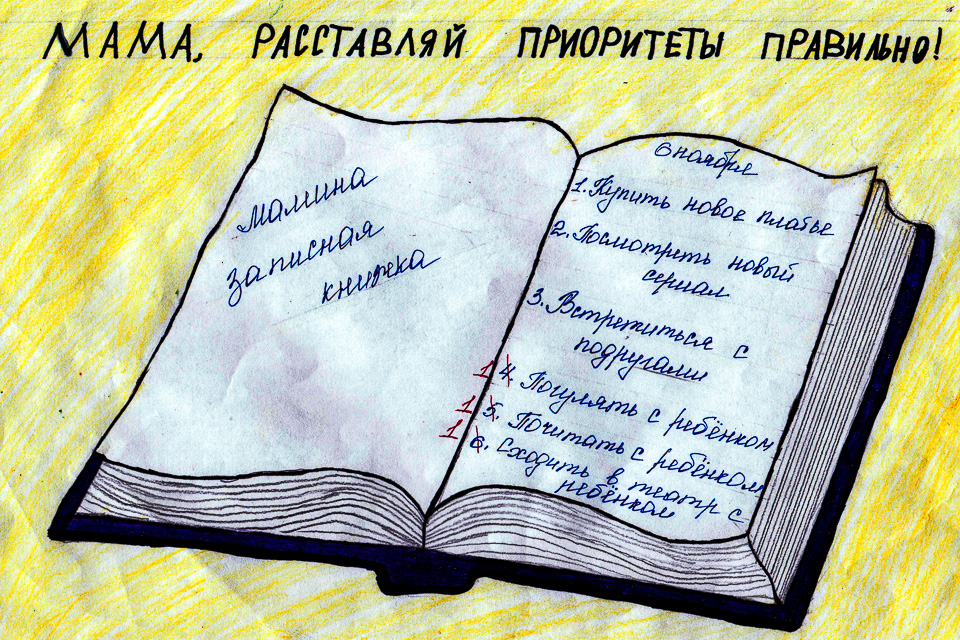 МАМА, РАССТАВЛЯЙ ПРИОРИТЕТЫ ПРАВИЛЬНО!
мамина
записная
книжка
6 ноября
1. Купить новое платье
2. Посмотреть новый
сериал
3. Встретиться с
подругами
1 4. Погулять с ребёнком
1 5. Почитать с ребёнком
1 6. Сходить в театр с
ребёнком